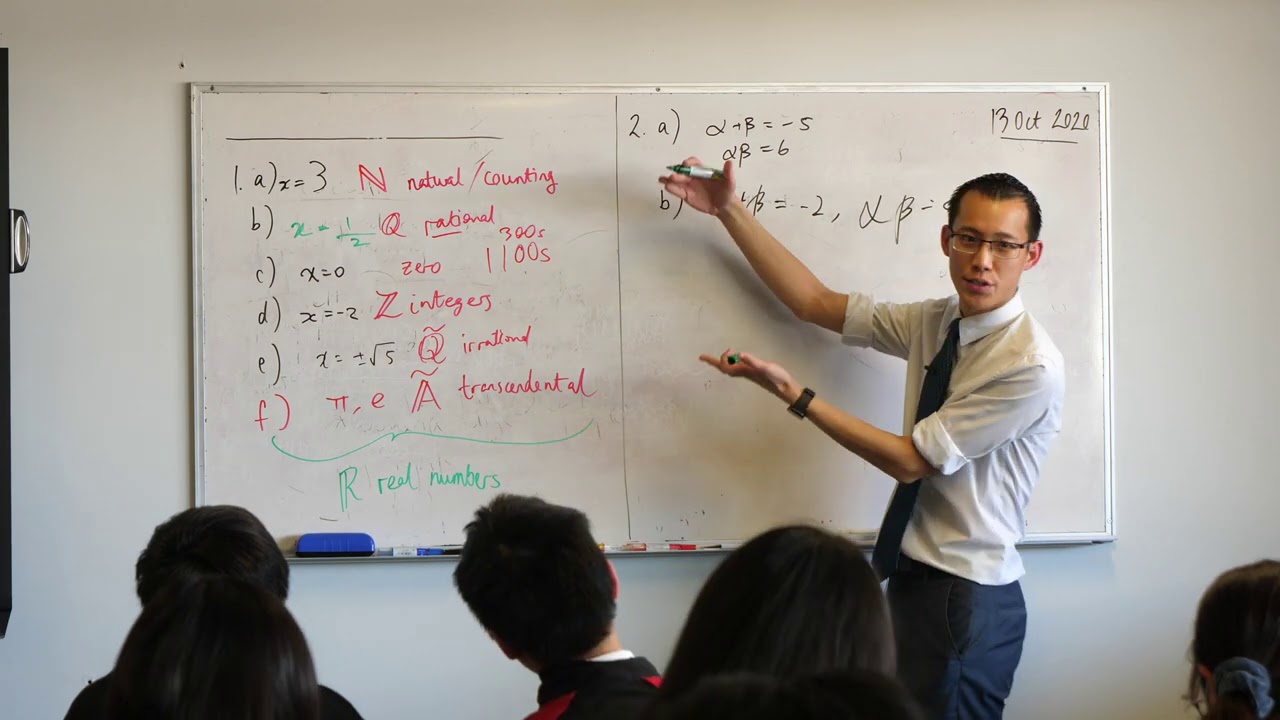 1. a) x = 3 ℕ natural/counting
b) x = 1/2 ℚ rational
300s
c) x=0 zero 1100s
d) x=-2 ℤ integers
e) x = ±√5 ℚ̃ irrational
f) π, e 𝔸̃ transcendental
ℝ real numbers
13 Oct 2020
2. a) α+β = -5
αβ = 6
b) β = -2, αβ =